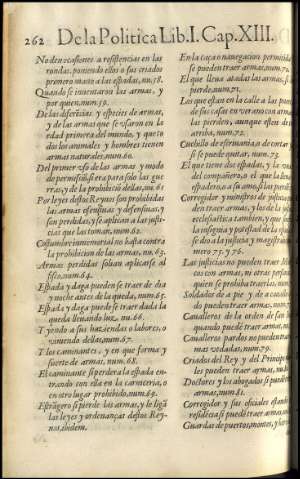 262 De la Politica Lib. I. Cap. XIII.
No den ocasiones a resistencias en las
rondas, poniendo ellos o sus criados
primero mano a las espadas, nu.58.
Quando se inuentaron las armas, y
por quien, num.59.
De las diferencias y especies de armas,
y de las armas que se vsaron en la
edad primera del mundo, y que to
dos los animales y hombres tienen
armas naturales, num.60.
Del primer vso de las armas y modo
de permitido, si era para solo las guer
ras, y de la prohibicion dellas, nu.61
Por leyes destos Reynos son prohibidas
las armas ofensiuas y defensiuas, y
son perdidas, y se aplican a las justi
cias que las toman, num.62.
Costumbre inmemorial no basta contra
la prohibicion de las armas, nu.63.
Armas perdidas solian aplicarse al
fisco, num.64.
Espada y daga pueden se traer de dia
y noche antes de la queda, num.65.
Espada y daga puede se traer dada la
queda lleuando luz, nu.66.
Yendo a sus haziendas o labores, o
viniendo dellas, num.67.
Y los caminantes, y en que forma y
suerte de armas, num.68.
El caminante si perdera la espada en-
trando con ella en la carniceria, o
en otro lugar prohibido, num.69.
Estrangero si pierde las armas, y le ligã
las leyes y ordenanças destos Rey-
nos, ibidem.
En la caça o nauegacion permitida
se pueden traer armas, num.70.
El que lleua atadas las armas, si
pierde, num.71.
Los que estan en la calle a las puer
de sus casas en verano con armas
las pierden, aunque esten de
arriba, num.72.
Cuchillo de escriuania o de cortar
si se puede quitar, num.73.
El que tiene dos espadas, y la vna
del compañero, o el que la lleua
espadero, a su amo, si las pierde
Corregidor y ministros de justicia
den traer armas, y los de la
eclesiastica tambien, y que son
la insignia y potestad de la espada
se dio a la justicia y magistrados
mero 75. y 76.
Las justicias no pueden traer
cos con armas, ni otras personas
quien se prohiba traerlas, num.
Soldados de a pie y de a cauallo
do pueden traer armas, num.
Caualleros de la orden de san
quando puede traer armas, num.
Caualleros pardos no pueden traer
mas vedadas, num.
Criados del Rey y del Principe
les pueden traer armas, num.
Doctores y los abogados si pueden
armas, num.81.
Corregidor y sus oficiales estando
residécia si puede traer armas,
Guardas de puertos, montes, y